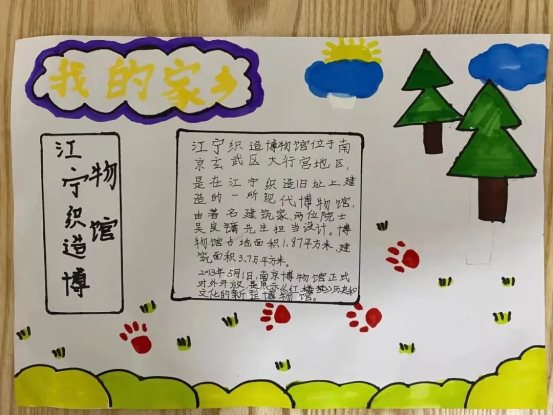 我的家乡
江宁织造博
物馆
江宁织造博物馆位于南
京玄武区大行宫地区,
是在江宁织造旧址上建
造的一所现代博物馆,
由著名建筑家、两位院士
吴良镛先生担当设计。博
物馆占地面积1.87平方米,建
筑面积3.7万平方米。
2013年5月1日,南京博物馆正式
对外开放,是展示《红楼梦》历史和
文化的新型博物馆。